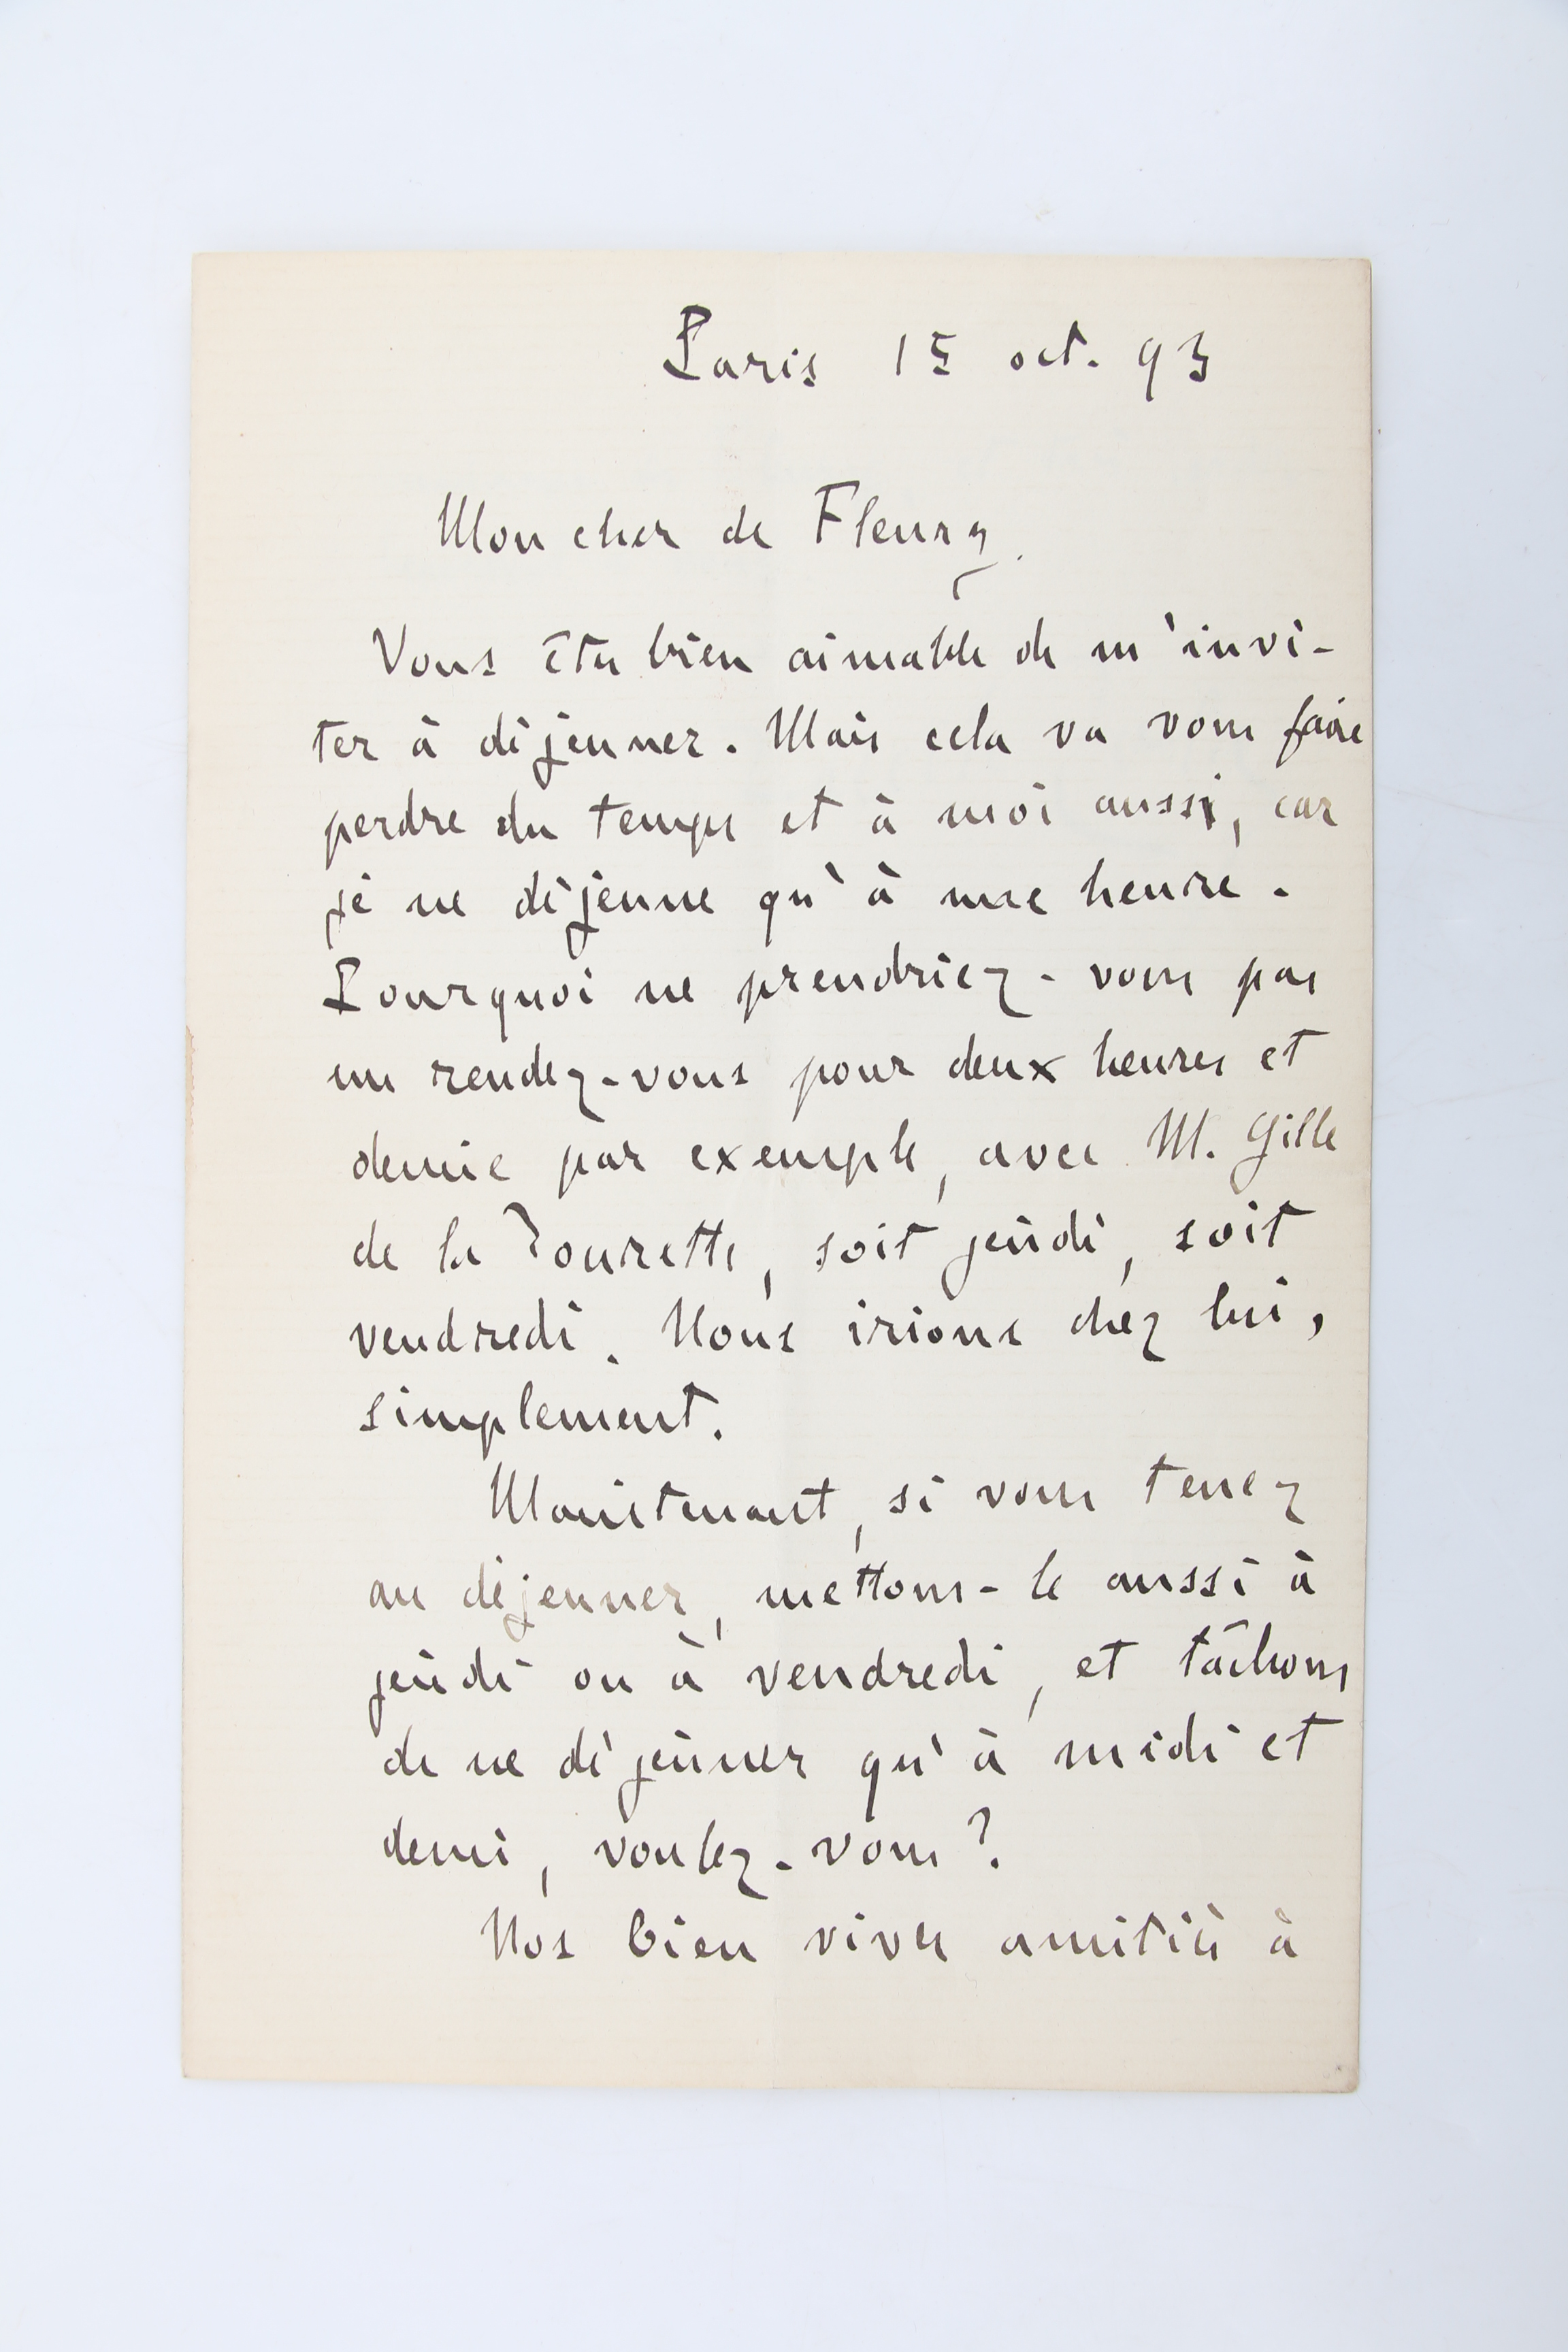 Paris 15 oct. 93
Mon cher de Fleury.
Vous êtes bien aimable de m'invi-
ter à déjeuner. Mais cela va vous faire
perdre du temps et à moi aussi, car
je ne déjeune qu'à une heure.
Pourquoi ne prendriez-vous pas
un rendez-vous pour deux heures et
demie par exemple, avec M. Gille
de la Tourette, soit jeudi, soit
vendredi. Nous irions chez lui,
simplement.
Maintenant, si vous tenez
au déjeuner, mettons-le aussi à
jeudi ou à vendredi, et tâchons
de ne déjeuner qu'à midi et
demi, voulez-vous?
Nos bien vives amitiés à